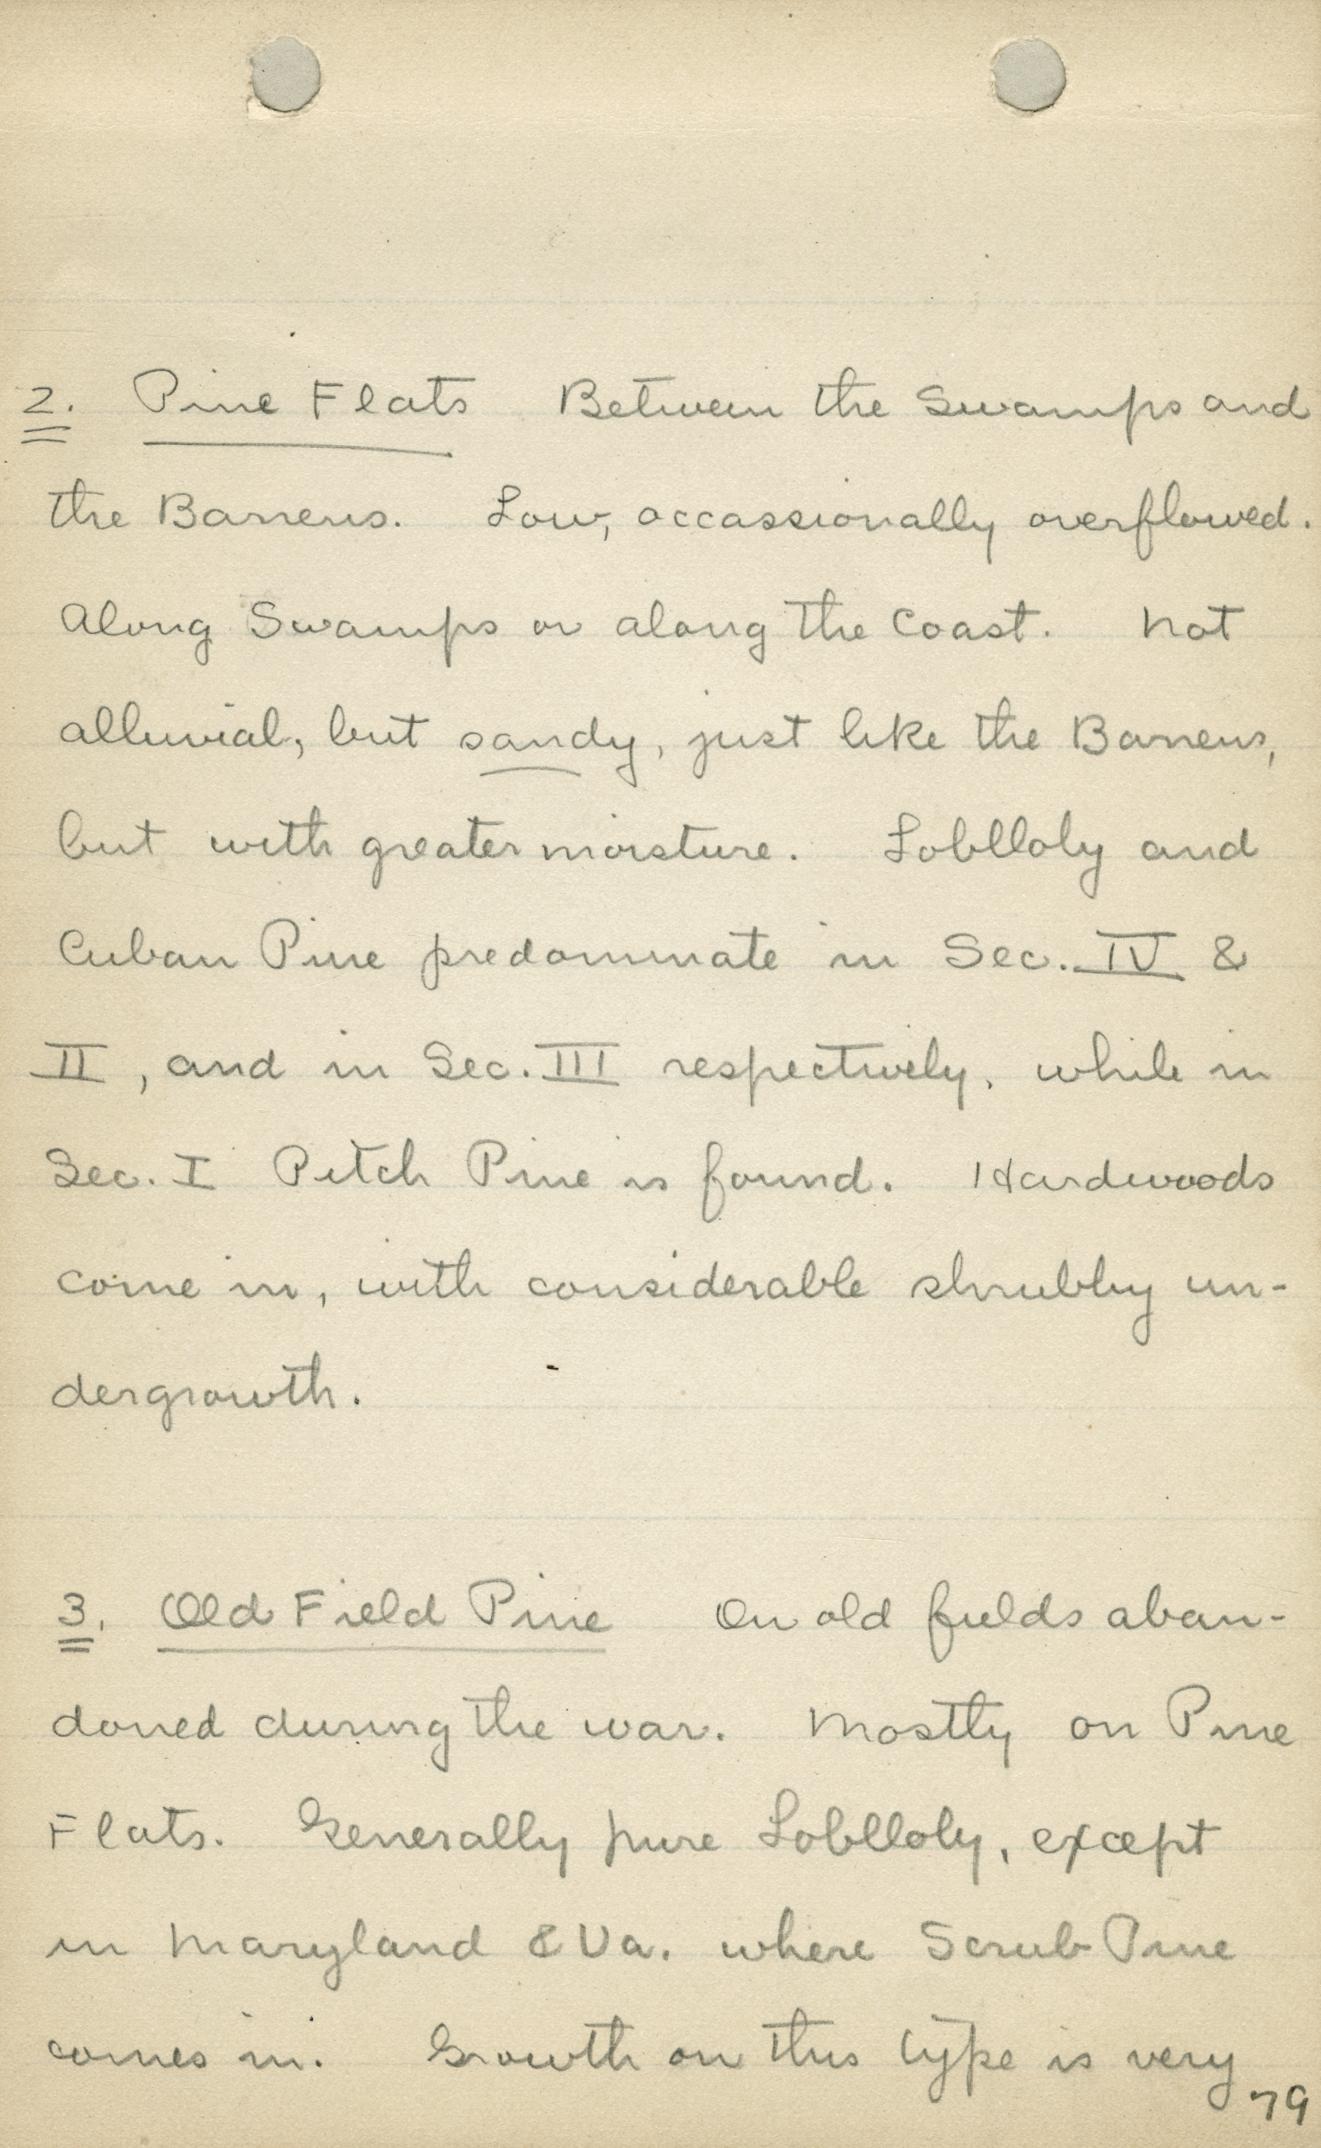 2. Pine Flats Between the Swamps and
the Barrens. Low, occassionally overflowed.
Along Swamps or along the Coast. Not
alluvial, but sandy, just like the Barrens,
but with greater moisture. Loblloly and
Cuban Pine predominate in Sec. IV &
II, and in Sec. III respectively, while in
Sec. I Pitch Pine is found. Hardwoods
come in, with considerable shrubby un-
dergrowth.
3. Old Field Pine On old fields aban-
doned during the war. Mostly on Pine
Flats. Generally pure Loblloly, except
in Maryland & Va. where Scrub Pine
comes in. Growth on this type is very
79